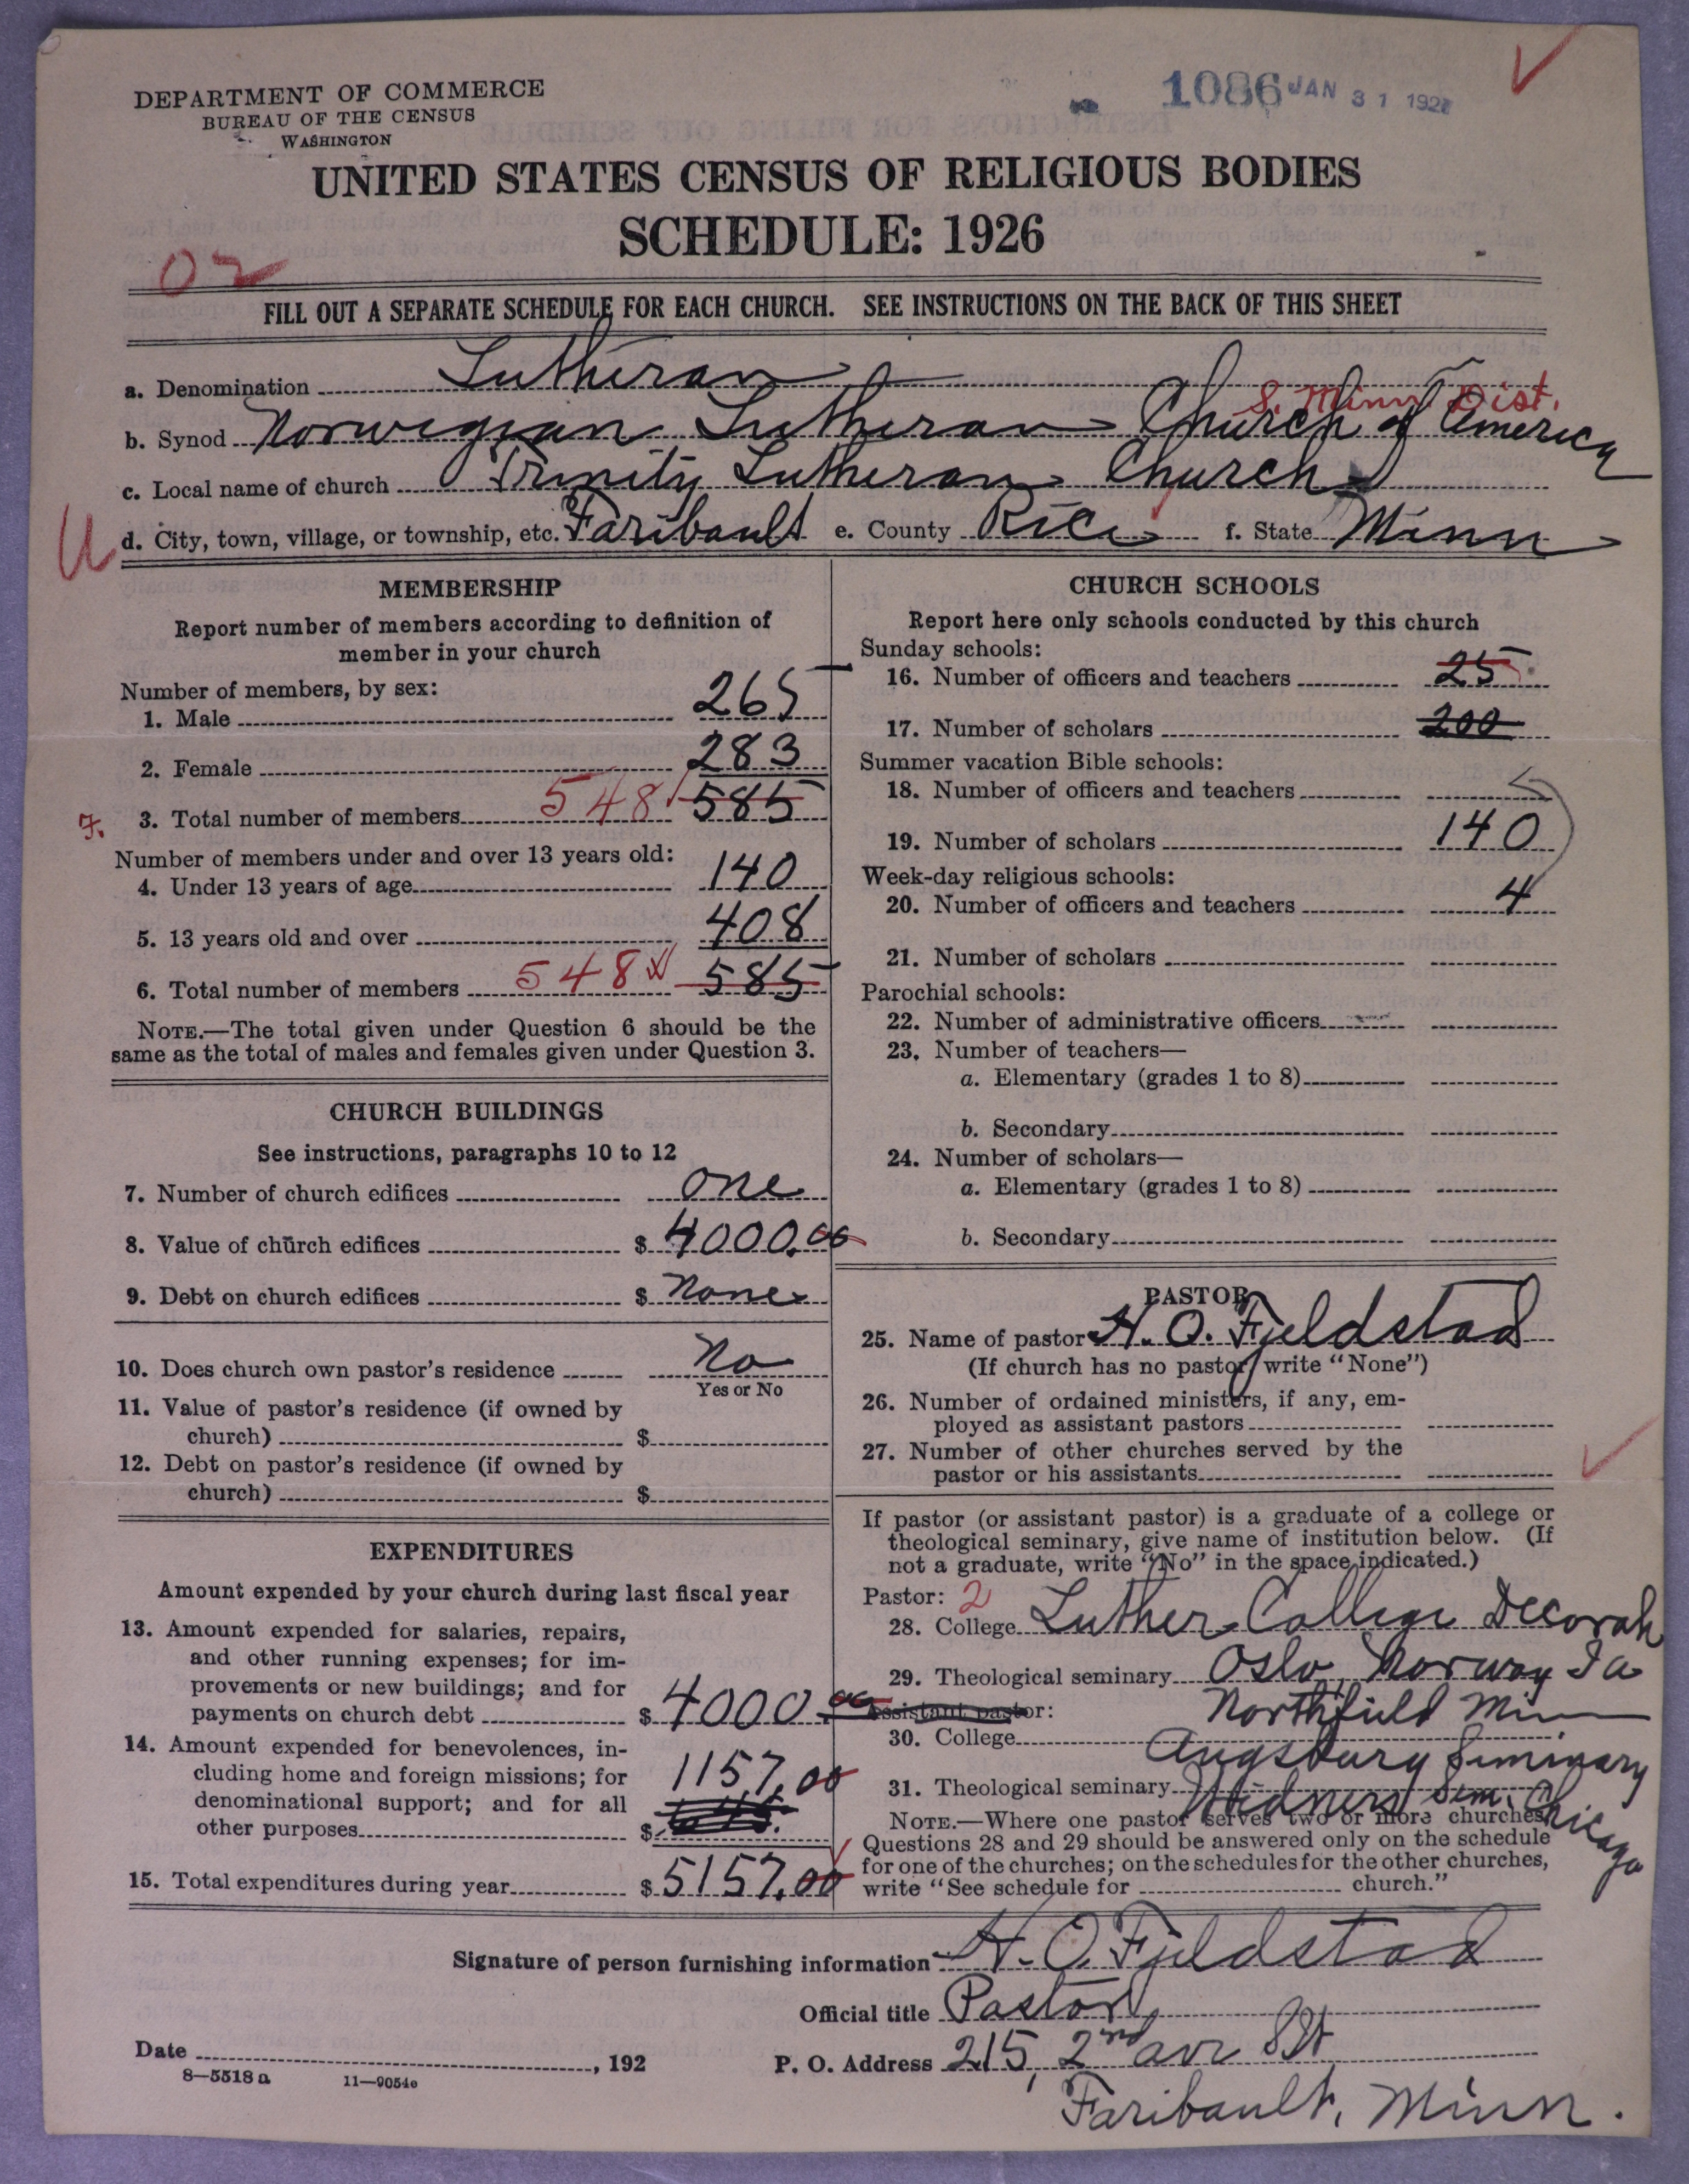 DEPARTMENT OF COMMERCE
BUREAU OF THE CENSUS
WASHINGTON
1086 JAN 31 192
UNITED STATES CENSUS OF RELIGIOUS BODIES
SCHEDULE: 1926
02
FILL OUT A SEPARATE SCHEDULE FOR EACH CHURCH. SEE INSTRUCTIONS ON THE BACK OF THIS SHEET
a. Denomination Lutheran
S. Minn Dist.
b. Synod Norwegian Lutheran Church of America
c. Local name of church Trinity Lutheran Church
d. City, town, village, or township, etc. Faribault e. County Rice f. State Minn
MEMBERSHIP
Report number of members according to definition of
member in your church
Number of members, by sex:
1. Male 265
2. Female 283
3. Total number of members 548 585
Number of members under and over 13 years old:
4. Under 13 years of age 140
5. 13 years old and over 408
6. Total number of members 548 585
NOTE.—The total given under Question 6 should be the
same as the total of males and females given under Question 3.
CHURCH BUILDINGS
See instructions, paragraphs 10 to 12
7. Number of church edifices one
8. Value of church edifices $ 4000.00
9. Debt on church edifices $ None
10. Does church own pastor's residence No
Yes or No
11. Value of pastor's residence (if owned by
church) $
12. Debt on pastor's residence (if owned by
church) $
EXPENDITURES
Amount expended by your church during last fiscal year
13. Amount expended for salaries, repairs,
and other running expenses; for im-
provements or new buildings; and for
payments on church debt $ 4000.00
14. Amount expended for benevolences, in-
cluding home and foreign missions; for
denominational support; and for all
other purposes $ 1157.00
15. Total expenditures during year $ 5157.00
CHURCH SCHOOLS
Report here only schools conducted by this church
Sunday schools:
16. Number of officers and teachers 25
17. Number of scholars 200
Summer vacation Bible schools:
18. Number of officers and teachers
19. Number of scholars 140
Week-day religious schools:
20. Number of officers and teachers 4
21. Number of scholars
Parochial schools:
22. Number of administrative officers
23. Number of teachers—
a. Elementary (grades 1 to 8)
b. Secondary
24. Number of scholars—
a. Elementary (grades 1 to 8)
b. Secondary
PASTOR
25. Name of pastor H. O. Fjeldstad
(If church has no pastor write "None")
26. Number of ordained ministers, if any, em-
ployed as assistant pastors
27. Number of other churches served by the
pastor or his assistants
If pastor (or assistant pastor) is a graduate of a college or
theological seminary, give name of institution below. (If
not a graduate, write "No" in the space indicated.)
Pastor: 2
28. College Luther College Decorah
29. Theological seminary Oslo, Norway Ia
Assistant pastor: Northfield Minn
30. College Augsburg Seminary
31. Theological seminary Sem. Chicago
NOTE.—Where one pastor serves two or more churches
Questions 28 and 29 should be answered only on the schedule
for one of the churches; on the schedules for the other churches,
write "See schedule for church."
Signature of person furnishing information H. O. Fjeldstad
Official title Pastor
Date , 192
P. O. Address 215, 2nd ave St
8—5518 a 11—9054e
Faribault, Minn.